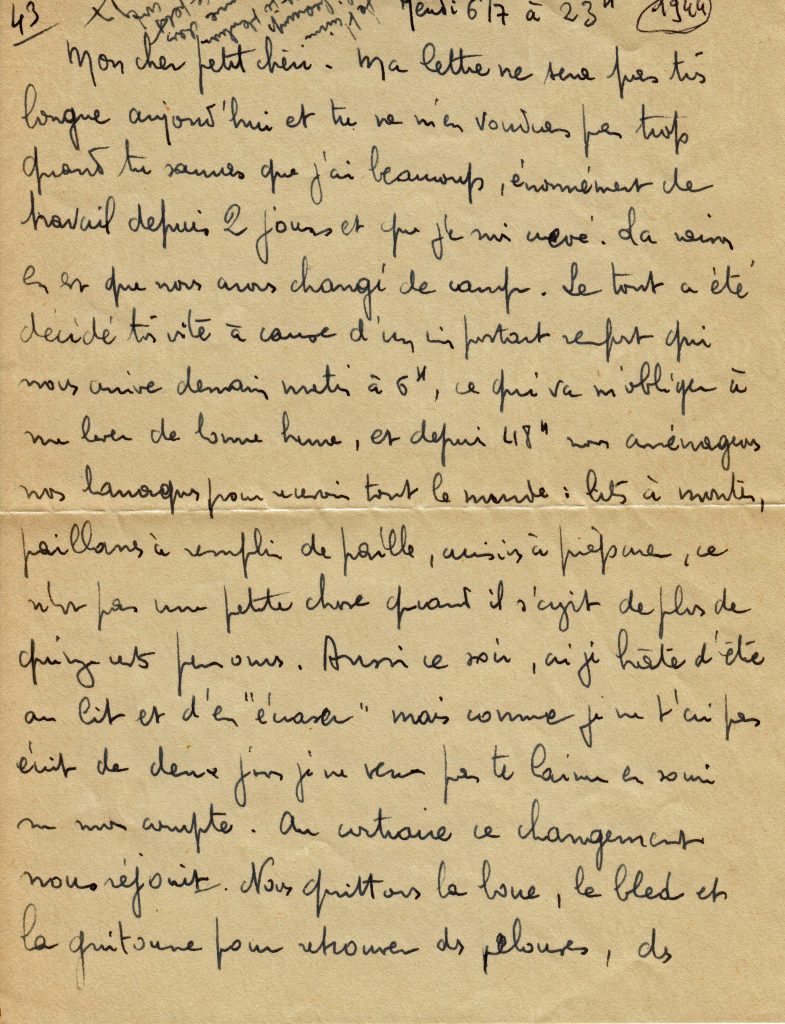 43
Jeudi 6/7 à 23H 1944
Mon cher petit chéri. Ma lettre ne sera pas très
longue aujourd'hui et tu ne m'en voudras pas trop
quand tu sauras que j'ai beaucoup, énormément de
travail depuis 2 jours et que je suis crevé. La raison
en est que nous avons changé de camp. Le tout a été
décidé très vite à cause d'un important renfort qui
nous arrive demain matin à 6H, ce qui va m'obliger à
me lever de bonne heure, et depuis 48H nous aménageons
nos baraques pour recevoir tout le monde : lits à monter,
paillasses à remplir de paille, cuisines à préparer, ce
n'est pas une petite chose quand il s'agit de plus de
quinze cents personnes. Aussi ce soir, ai-je hâte d'être
au lit et d'en "écraser" mais comme je ne t'ai pas
écrit de deux jours je ne veux pas te laisser en souci
sur mon compte. Au contraire ce changement
nous réjouit. Nous quittons la boue, le bled et
la guitoune pour retrouver des pelouses, des